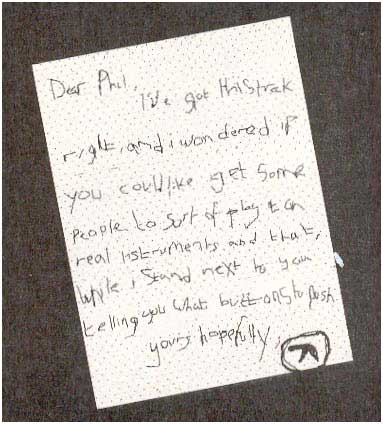 Dear Phil,
I've got this trak
right, and i wondered if
you could like get some
people to sort of play it on
real instruments and that,
while i stand next to you
telling you what buttons to push
yours hopefully,